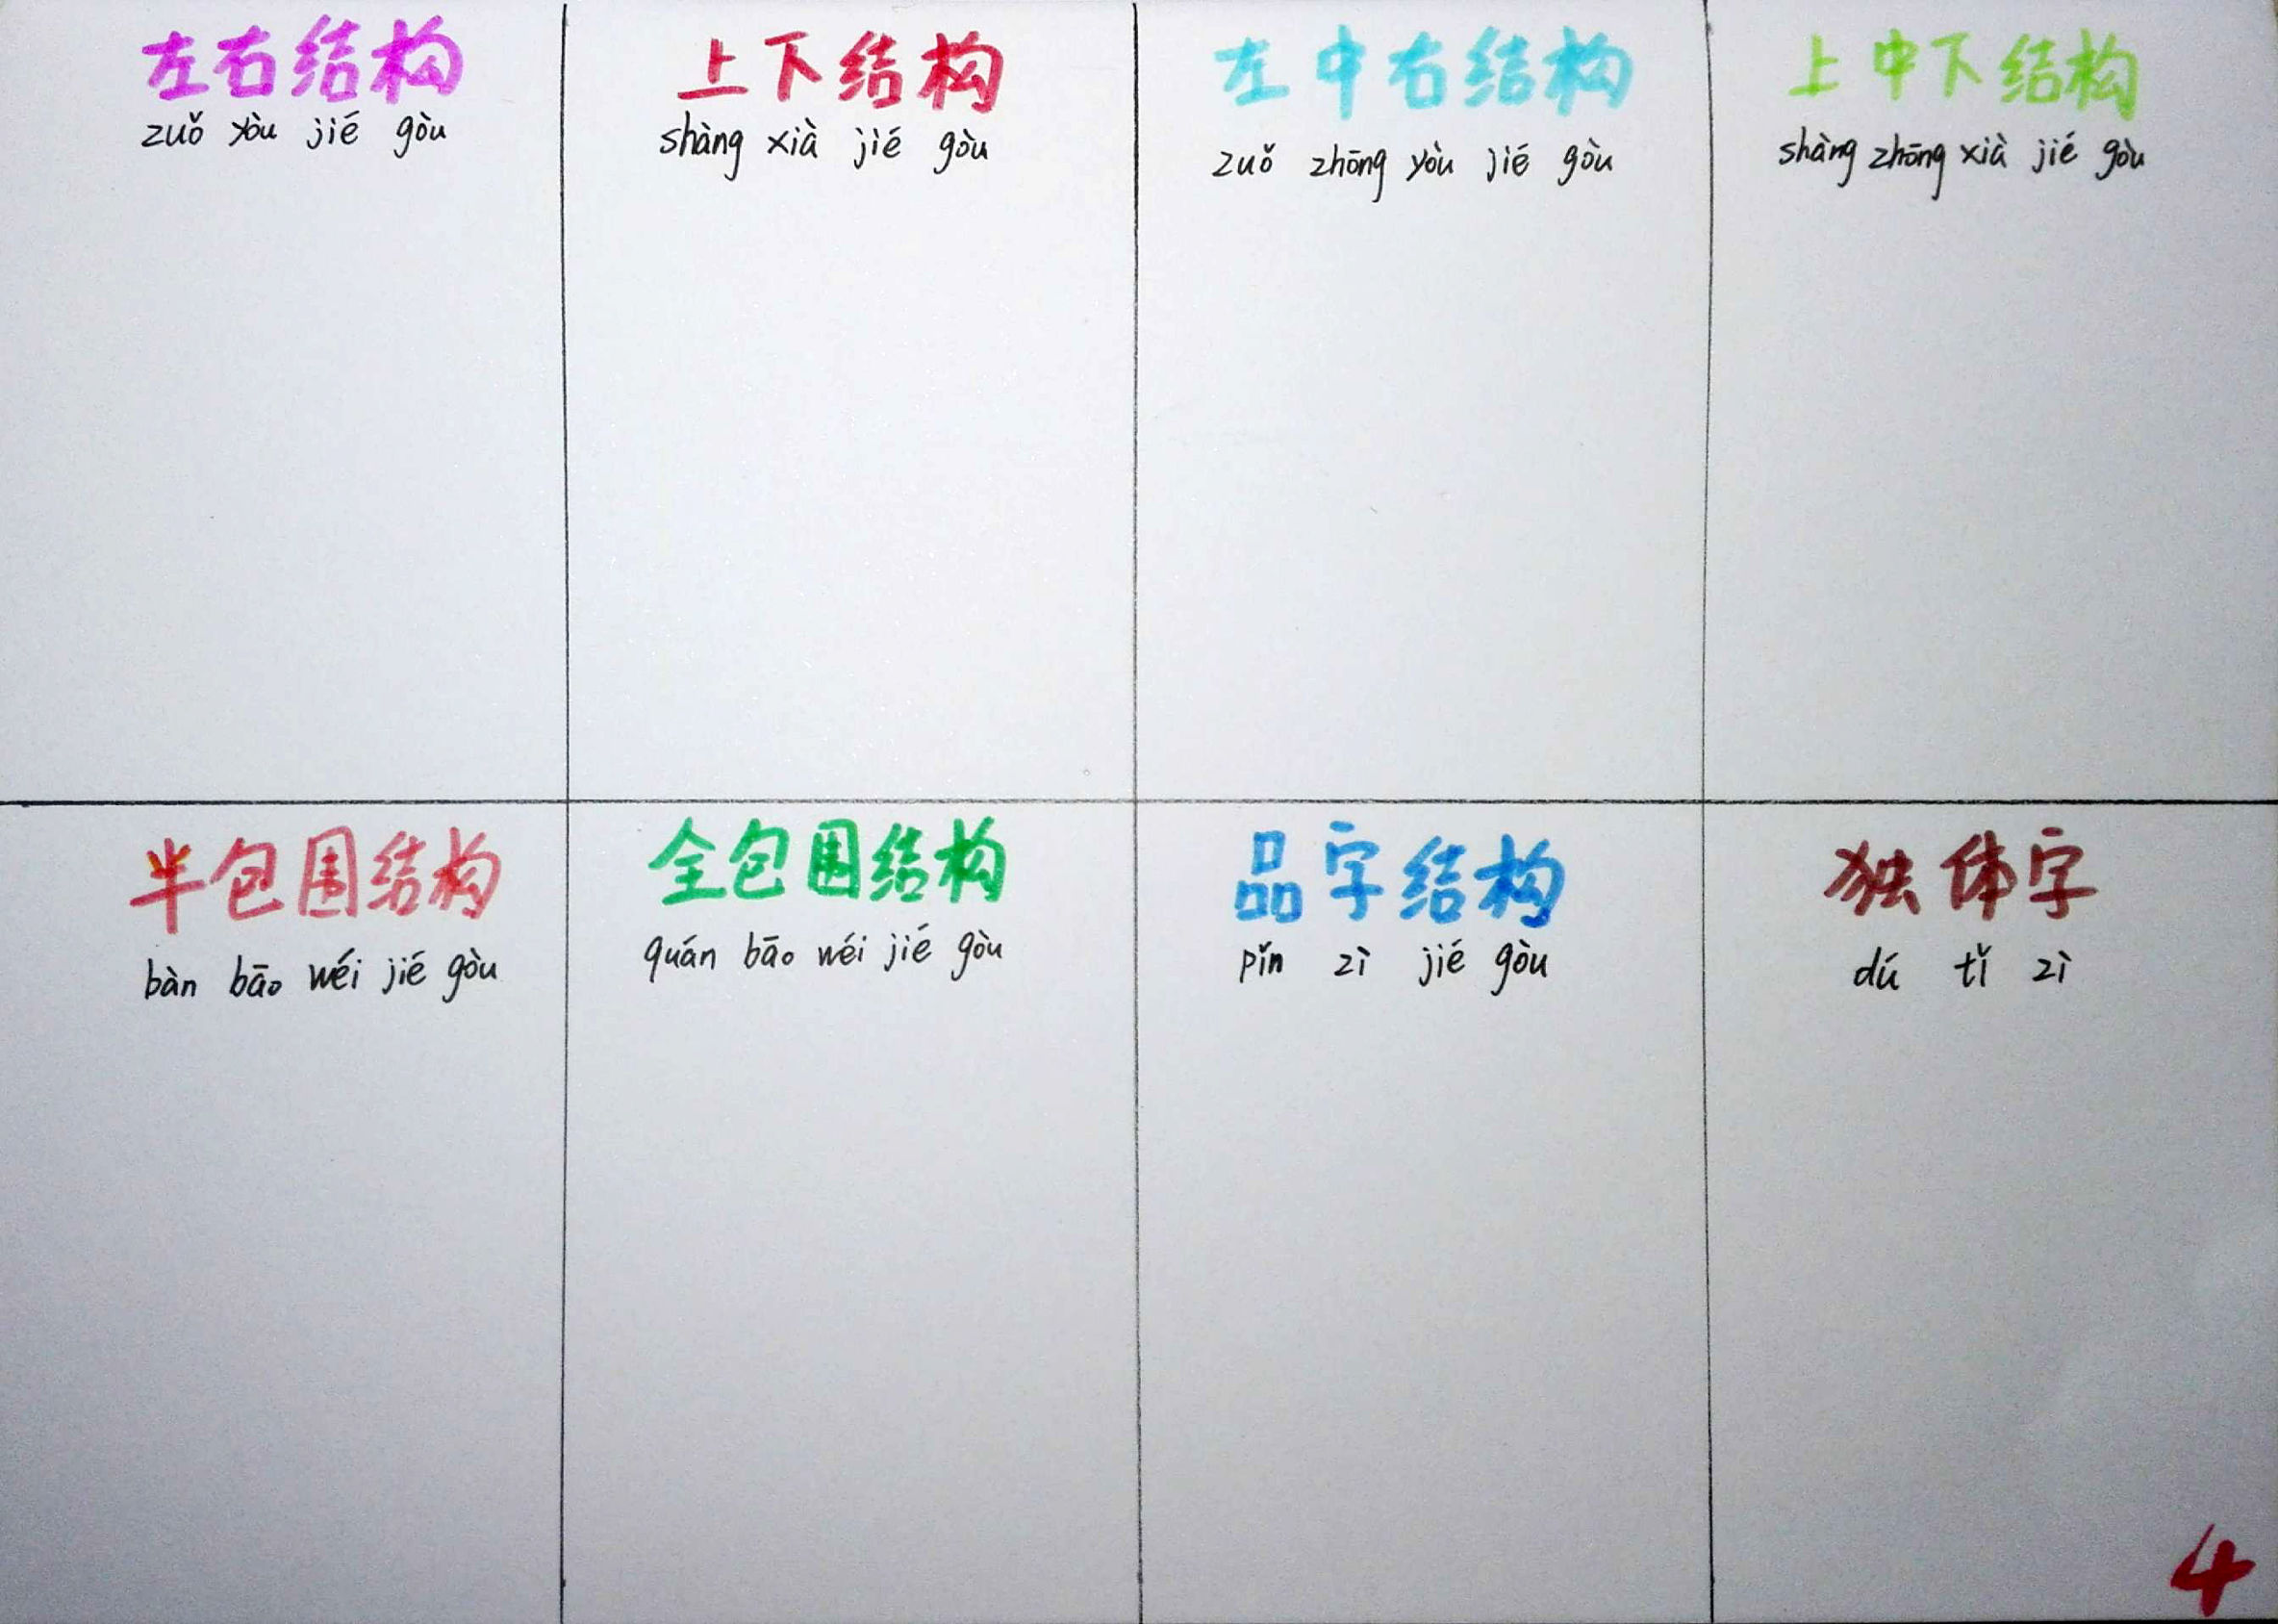 左右结构
zuǒ yòu jié gòu
上下结构
shàng xià jié gòu
左中右结构
zuǒ zhōng yòu jié gòu
上中下结构
shàng zhōng xià jié gòu
半包围结构
bàn bāo wéi jié gòu
全包围结构
quán bāo wéi jié gòu
品字结构
pǐn zì jié gòu
独体字
dú tǐ zì
4